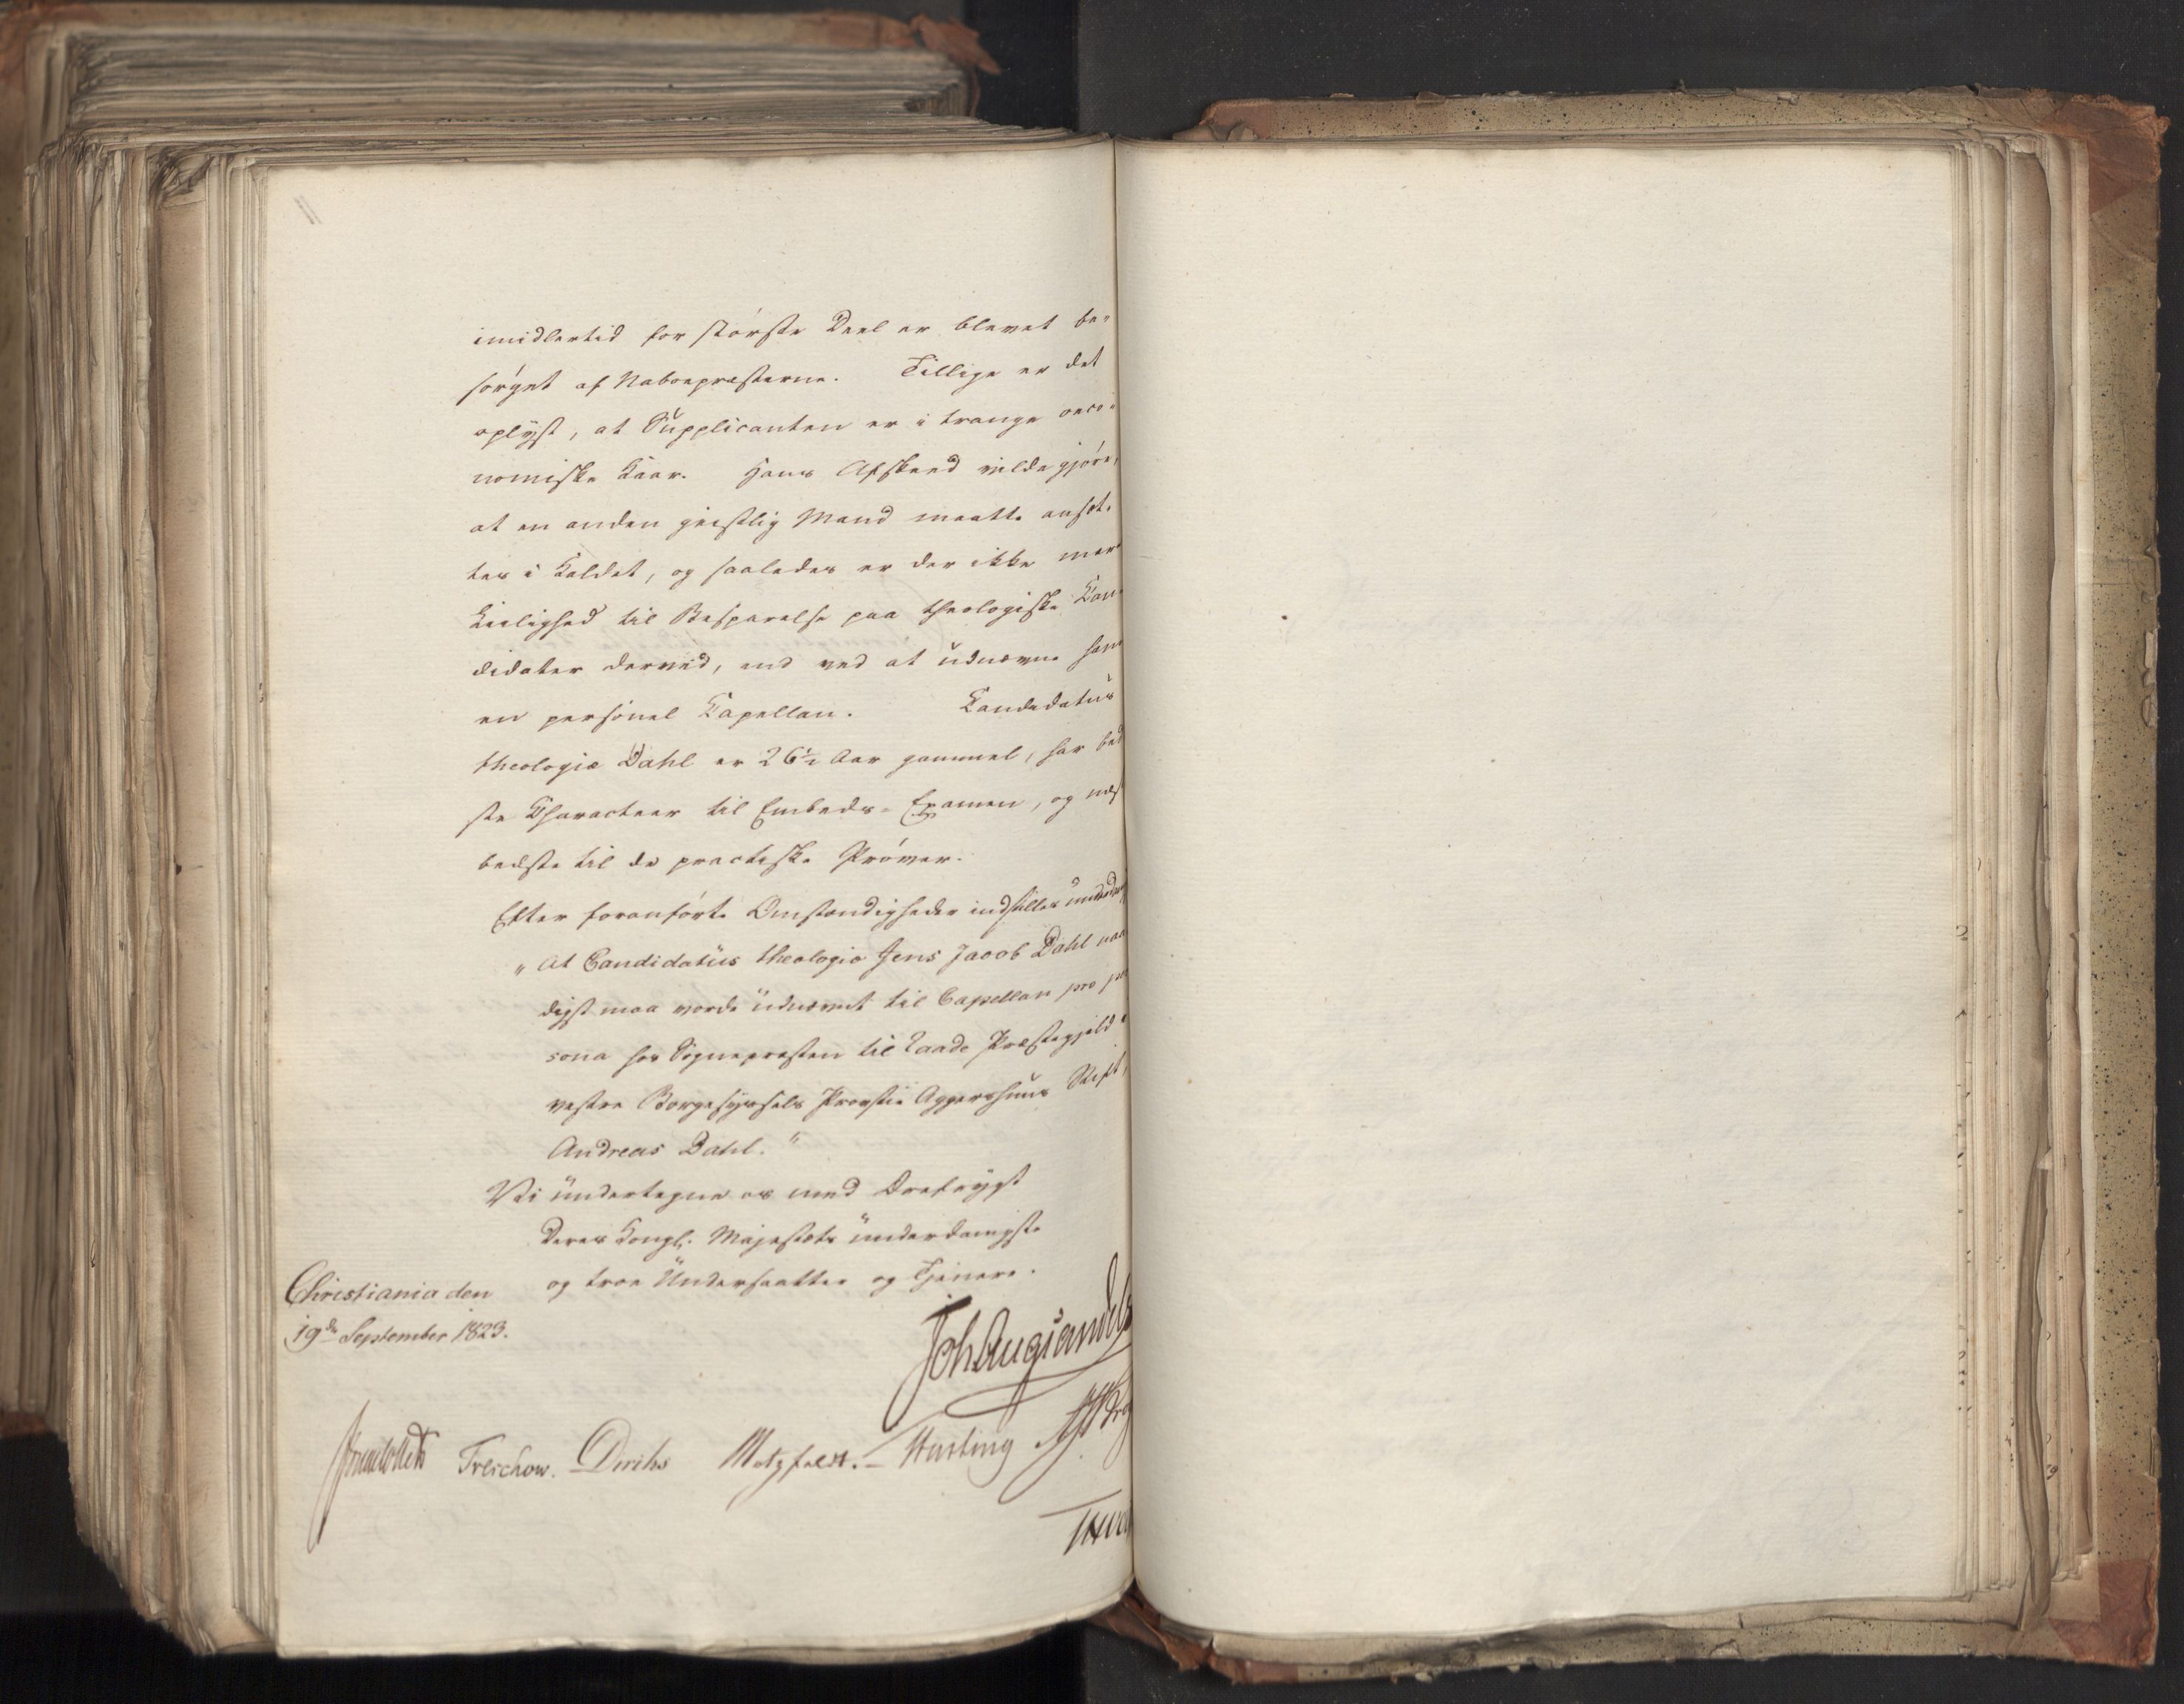 imidlertid for störste Deel er blevet be-
sörget af Naboepræsterne. Tillige er det
oplyst, at Supplicanten er i trange oeco-
nomiske Kaar. Hans Afskeed vilde gjöre,
at en anden geistlig Mand maatte ansæt-
tes i Kaldet, og saaledes er der ikke mer
Leilighed til Besparelse paa theologiske Kan-
didater derved, end ved at udnævne ham
en personel Kapellan. Kandidatus
theologiæ Dahl er 26½ Aar gammel, har bed
ste Character til Embeds-Examen, og næst
bedste til de practiske Pröver.
Efter foranförte Omstændigheder indstilles underdan
"At Candidatus theologiæ Jens Jacob Dahl naa
digst maa vorde udnævnt til Capellan pro per
sona hos Sognepræsten til Raade Præstegjeld i
vestre Borgesyssels Provstie Aggershuus Stift,
Andreas Dahl."
Vi undertegne os med Ærefrygt
Deres Kongl. Majestæts underdanigste
og troe Undersaatter og Tjenere.
Christiania den
19de September 1823.
Joh Aug Sandels
Sommerhielm Treschow. Diriks Motzfeldt. Hasting